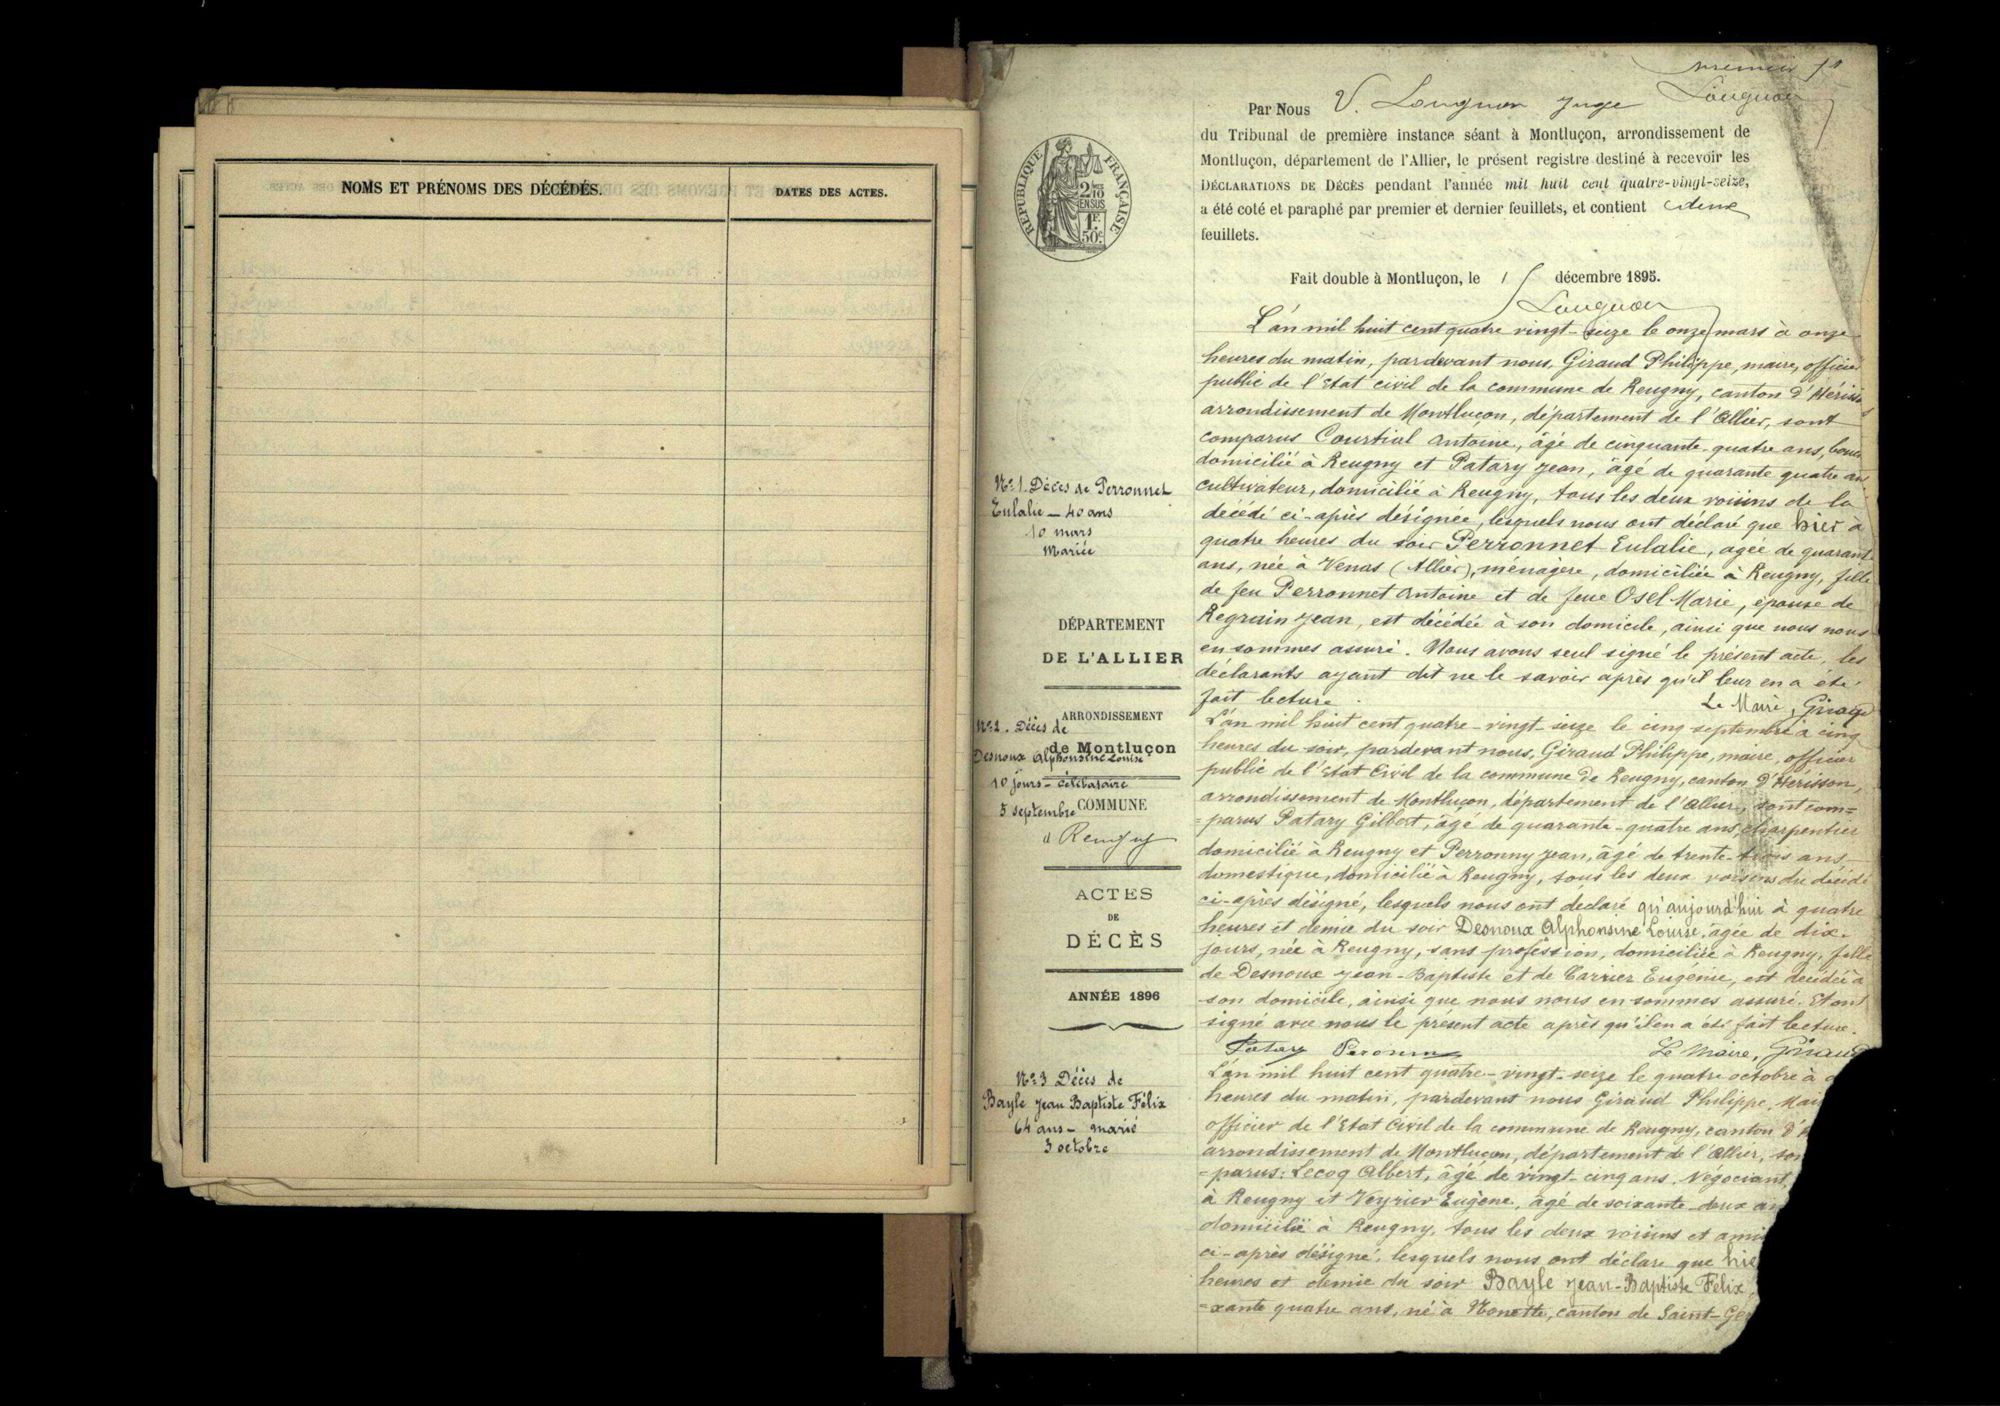 NOMS ET PRÉNOMS DES DÉCÉDÉS.
DATES DES ACTES.
premier
Lougnon
Par Nous V. Lougnon Juge
du Tribunal de première instance séant à Montluçon, arrondissement de
Montluçon, département de l'Allier, le présent registre destiné à recevoir les
DÉCLARATIONS DE DÉCÈS pendant l'année mil huit cent quatre-vingt-seize,
a été coté et paraphé par premier et dernier feuillets, et contient deux
feuillets.
Fait double à Montluçon, le 15 décembre 1895.
Lougnon
RÉPUBLIQUE FRANÇAISE
2/10
EN SUS
1F.
50c.
N° 1. Décès de Perronnet
Eulalie — 40 ans
10 mars
Mariée
L'an mil huit cent quatre vingt-seize le onze mars à onze
heures du matin, pardevant nous, Giraud Philippe, maire, officier
public de l'Etat civil de la commune de Reugny, canton d'Hériss
arrondissement de Montluçon, département de l'Allier, sont
comparus Courtial Antoine, âgé de cinquante-quatre ans,
domicilié à Reugny et Patary Jean, âgé de quarante quatre an
cultivateur, domicilié à Reugny, tous les deux voisins de la
décédé ci-après désignée, lesquels nous ont déclaré que hier à
quatre heures du soir Perronnet Eulalie, agée de quarant
ans, née à Venas (Allier), ménagère, domiciliée à Reugny, fille
de feu Perronnet Antoine et de feue Osel Marie, épouse de
Regrain Jean, est décédée à son domicile, ainsi que nous nous
en sommes assuré. Nous avons seul signé le présent acte, les
déclarants ayant dit ne le savoir après qu'il leur en a été
fait lecture.
Le Maire, Giraud
DÉPARTEMENT
DE L'ALLIER
ARRONDISSEMENT
de Montluçon
COMMUNE
d Reugny
ACTES
DE
DÉCÈS
ANNÉE 1896
N° 2. Décès de
Desnoux Alphonsine Louise
10 jours - célibataire
5 septembre
L'an mil huit cent quatre-vingt-seize le cinq septembre à cinq
heures du soir, pardevant nous, Giraud Philippe, maire, officier
public de l'Etat Civil de la commune de Reugny, canton d'Hérisson,
arrondissement de Montluçon, département de l'Allier, sont com=
=parus Patary Gilbert, âgé de quarante-quatre ans, charpentier
domicilié à Reugny et Perronny Jean, âgé de trente-trois ans
domestique, domicilié à Reugny, tous les deux voisins du décédé
ci-après désigné, lesquels nous ont déclaré qu'aujourd'hui à quatre
heures et demie du soir Desnoux Alphonsine Louise, agée de dix-
jours, née à Reugny, sans profession, domiciliée à Reugny, fille
de Desnoux Jean-Baptiste et de Carrier Eugénie, est décédée à
son domicile, ainsi que nous nous en sommes assuré. Et ont
signé avec nous le présent acte après qu'il en a été fait lecture.
Patary
Le Maire, Giraud
N° 3 Décès de
Bayle Jean Baptiste Félix
64 ans - marié
3 octobre
L'an mil huit cent quatre-vingt-seize le quatre octobre à
heures du matin, pardevant nous Giraud Philippe, Mai
officier de l'Etat Civil de la commune de Reugny, canton d'
arrondissement de Montluçon, département de l'Allier, so
=parus: Lecoq Albert, âgé de vingt-cinq ans, négociant,
à Reugny et Veyrier Eugène, âgé de soixante-deux an
domicilié à Reugny, tous les deux voisins et ami
ci-après désigné, lesquels nous ont déclaré que hie
heures et demie du soir Bayle Jean-Baptiste Félix,
=xante quatre ans, né à Nonette, canton de Saint-Ger